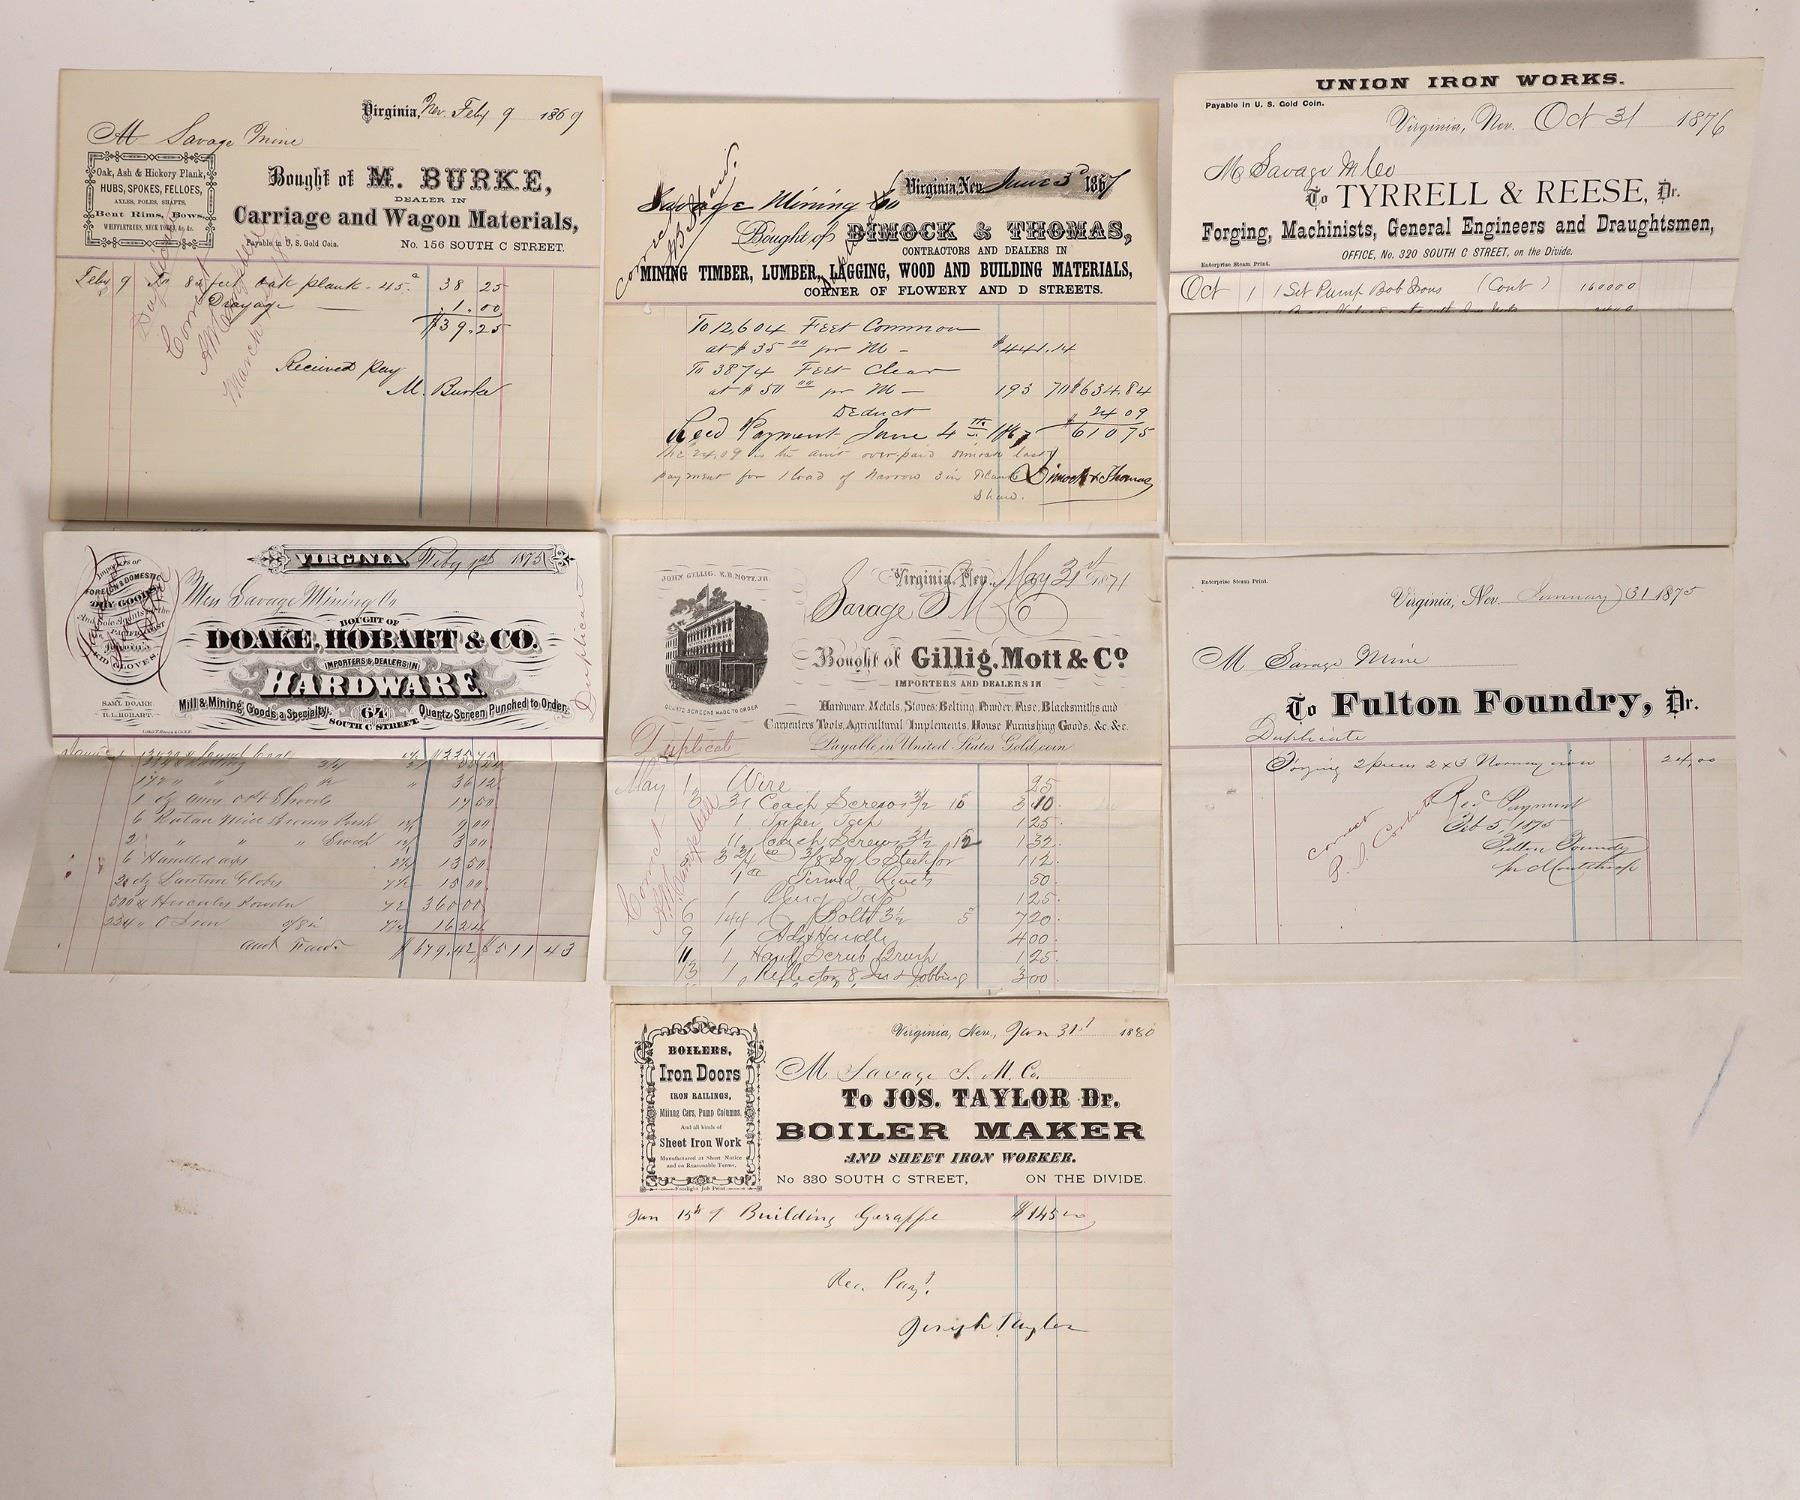 Virginia, Nev. Feby 9 1869
M Savage Mine
Oak, Ash & Hickory Plank,
HUBS, SPOKES, FELLOES,
AXLES, POLES, SHAFTS,
Bent Rims, Bows,
WHIFFLETREES, NECK YOKES, &c. &c.
Bought of M. BURKE,
DEALER IN
Carriage and Wagon Materials,
Payable in U. S. Gold Coin.
No. 156 SOUTH C STREET.
Feby 9 To 85 feet oak plank 45 38 25
Drayage 1.00
$39.25
Duplicate
Correct
March
Received Pay
M. Burke
Virginia, Nev June 3d 1867
Savage Mining Co
Bought of DIMOCK & THOMAS,
CONTRACTORS AND DEALERS IN
MINING TIMBER, LUMBER, LAGGING, WOOD AND BUILDING MATERIALS,
CORNER OF FLOWERY AND D STREETS.
Correct
To 12,604 Feet Common
at $35 00 pr M - $441.14
To 3874 Feet Clear
at $50 00 pr M - 193 70 $634.84
Deduct 24 09
Recd Payment June 4th 1867 $610 75
The 24.09 is the amt over paid Dimock last
payment for 1 load of narrow 3 in Plank
Shaw.
Dimock & Thomas
UNION IRON WORKS.
Payable in U. S. Gold Coin.
Virginia, Nov. Oct 31 1876
M Savage M Co
To TYRRELL & REESE, Dr.
Forging, Machinists, General Engineers and Draughtsmen,
OFFICE, No. 320 SOUTH C STREET, on the Divide.
Enterprise Steam Print.
Oct 1 1 Set Pump Bob Irons (Cont) 1600 00
VIRGINIA, Feby 1st 1875
Importers of
FOREIGN & DOMESTIC
DRY GOODS
KID GLOVES
SAML DOAKE.
R. L. HOBART.
Mess Savage Mining Co
BOUGHT OF
DOAKE, HOBART & CO.
IMPORTERS & DEALERS IN
HARDWARE
Mill & Mining Goods, a Specialty. 64 Quartz Screen Punched to Order.
SOUTH C STREET.
Duplicate
36 12
17 50
9 00
3 00
6 Handled axes 13 50
2 dz Lantern Globes 7½ 15 00
500 # Hercules Powder 72 360 00
234 " O Iron 16 24
and Forwd $679.42 $511 43
JOHN GILLIG. E.B. MOTT, JR
QUARTZ SCREENS MADE TO ORDER
Virginia, Nev., May 31st 1871
Savage S M Co
Bought of Gillig, Mott & Co.
IMPORTERS AND DEALERS IN
Hardware, Metals, Stoves, Belting, Powder, Fuse, Blacksmiths and
Carpenters Tools, Agricultural Implements, House Furnishing Goods, &c. &c.
Payable in United States Gold coin
Duplicate
Correct
May 1 Wire 95
3 31 Coach Screws 3½ 10 3 10
1 Taper Tap 1 25
11 Coach Screws 12 1 32
1 12
1 50
1 Plug Tap 1 25
6 144 C Bolts 3½ 5 7 20
9 1 Adz Handle 4 00
11 1 Hand Scrub Brush 1 25
13 1 Reflector 8 In & Jobbing 3 00
Enterprise Steam Print.
Virginia, Nev. January 31 1875
M Savage Mine
To Fulton Foundry, Dr.
Duplicate
Forging 2 pieces 2 x 3 Norway iron 24,00
Correct
Rec Payment
Feb 5, 1875
Fulton Foundry
BOILERS,
Iron Doors
IRON RAILINGS,
Mining Cars, Pump Columns,
And all kinds of
Sheet Iron Work
Manufactured at Short Notice
and on Reasonable Terms.
Footlight Job Print.
Virginia, Nev., Jan 31st 1880
M Savage S. M. Co.
To JOS. TAYLOR Dr.
BOILER MAKER
AND SHEET IRON WORKER.
No 330 SOUTH C STREET, ON THE DIVIDE.
Jan 15th Building Geraffe $145 00
Rec. Payt.
Joseph Taylor